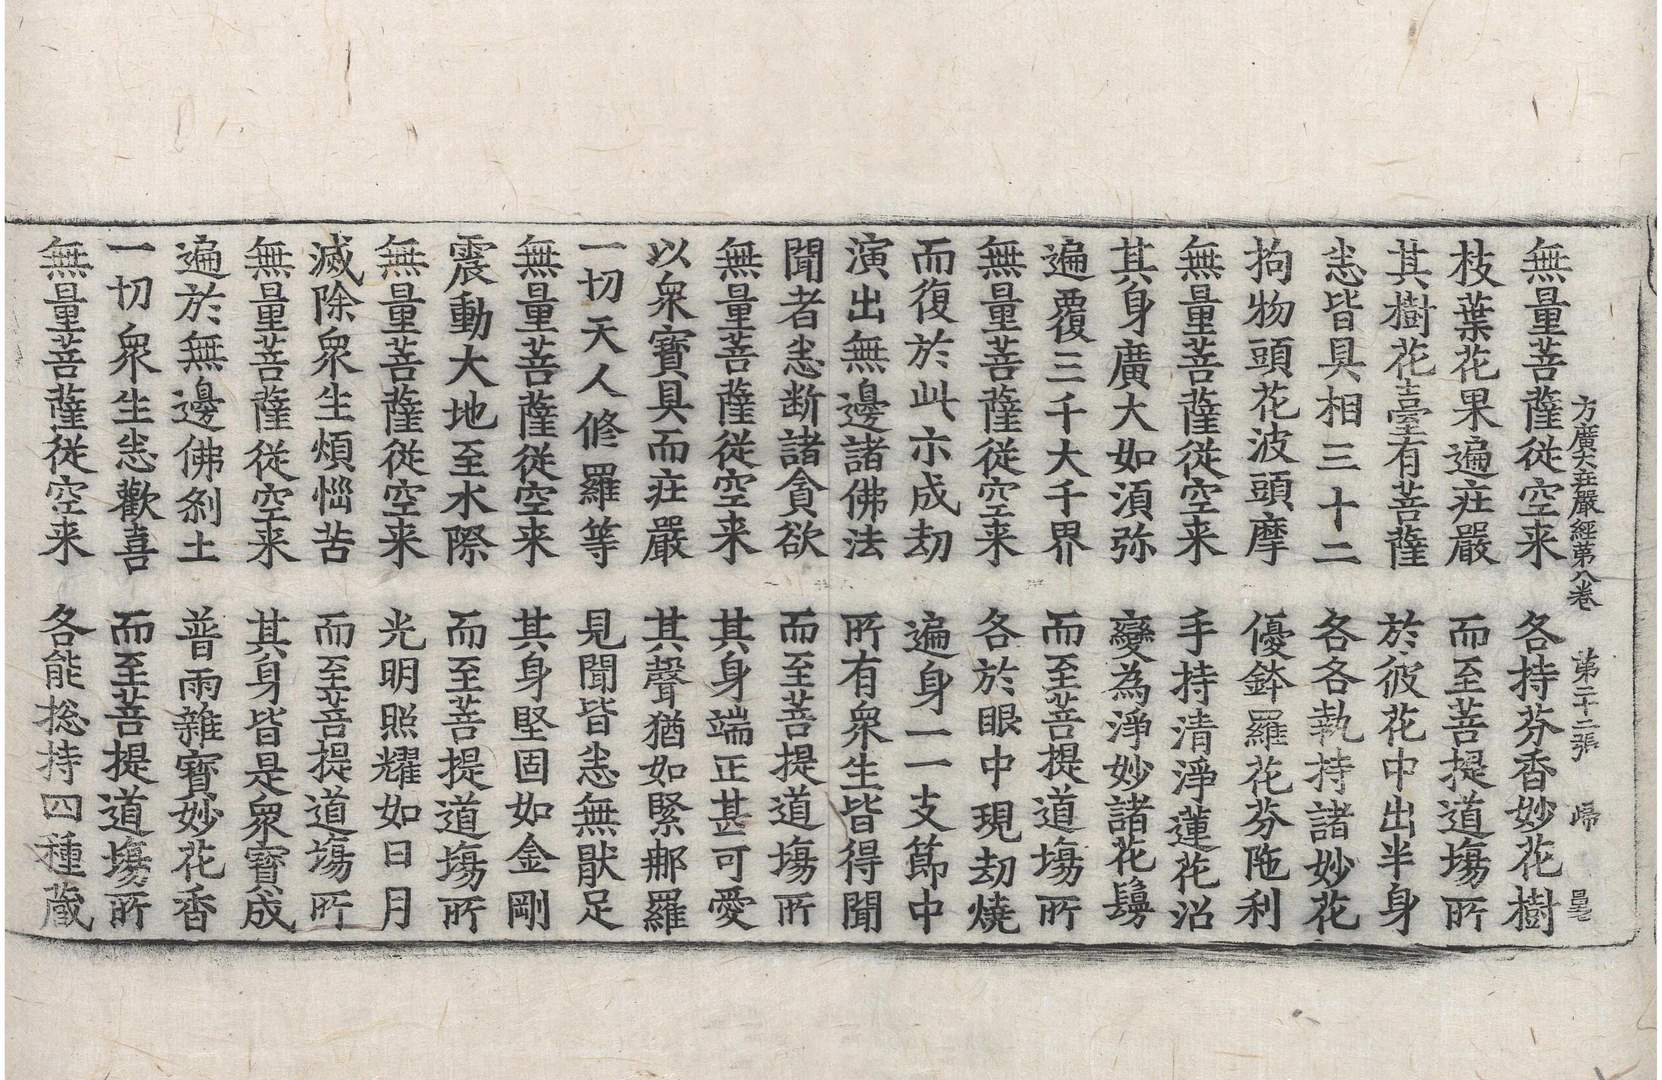 方廣大莊嚴經第八卷　第二十二張　歸
無量菩薩從空来　各持芬香妙花樹
枝葉花果遍莊嚴　而至菩提道塲所
其樹花臺有菩薩　於彼花中出半身
悉皆具相三十二　各各執持諸妙花
拘物頭花波頭摩　優鉢羅花芬陁利
無量菩薩從空来　手持清淨蓮花沼
其身廣大如須弥　變為淨妙諸花鬘
遍覆三千大千界　而至菩提道塲所
無量菩薩從空来　各於眼中現劫燒
而復於此示成劫　遍身一一支節中
演出無邊諸佛法　所有衆生皆得聞
聞者悉断諸貪欲　而至菩提道塲所
無量菩薩從空来　其身端正甚可愛
以衆寶具而莊嚴　其聲猶如緊那羅
一切天人修羅等　見聞皆悉無猒足
無量菩薩從空来　其身堅固如金剛
震動大地至水際　而至菩提道塲所
無量菩薩從空来　光明照耀如日月
滅除衆生煩惱苦　而至菩提道塲所
無量菩薩從空来　其身皆是衆寶成
遍於無邊佛刹土　普雨雜寶妙花香
一切衆生悉歡喜　而至菩提道塲所
無量菩薩從空来　各能捴持四種藏